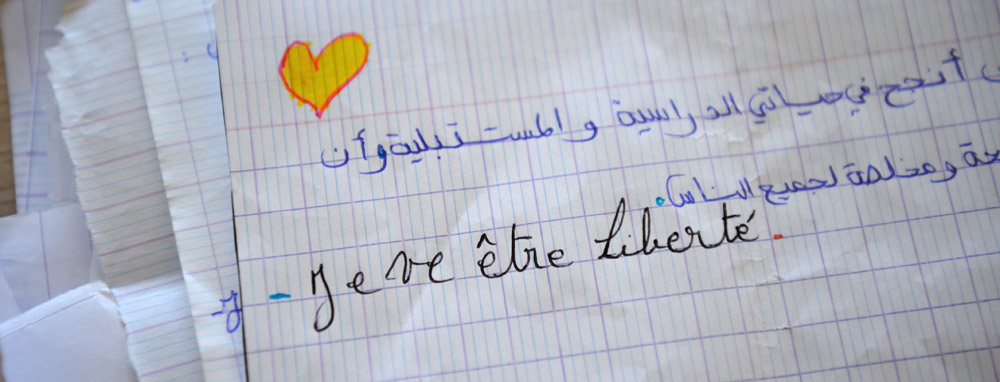 أنجح في حياتي الدراسية والمستقبلية وأن
ومخلصة لجميع الناس.
- Je ve être liberté.